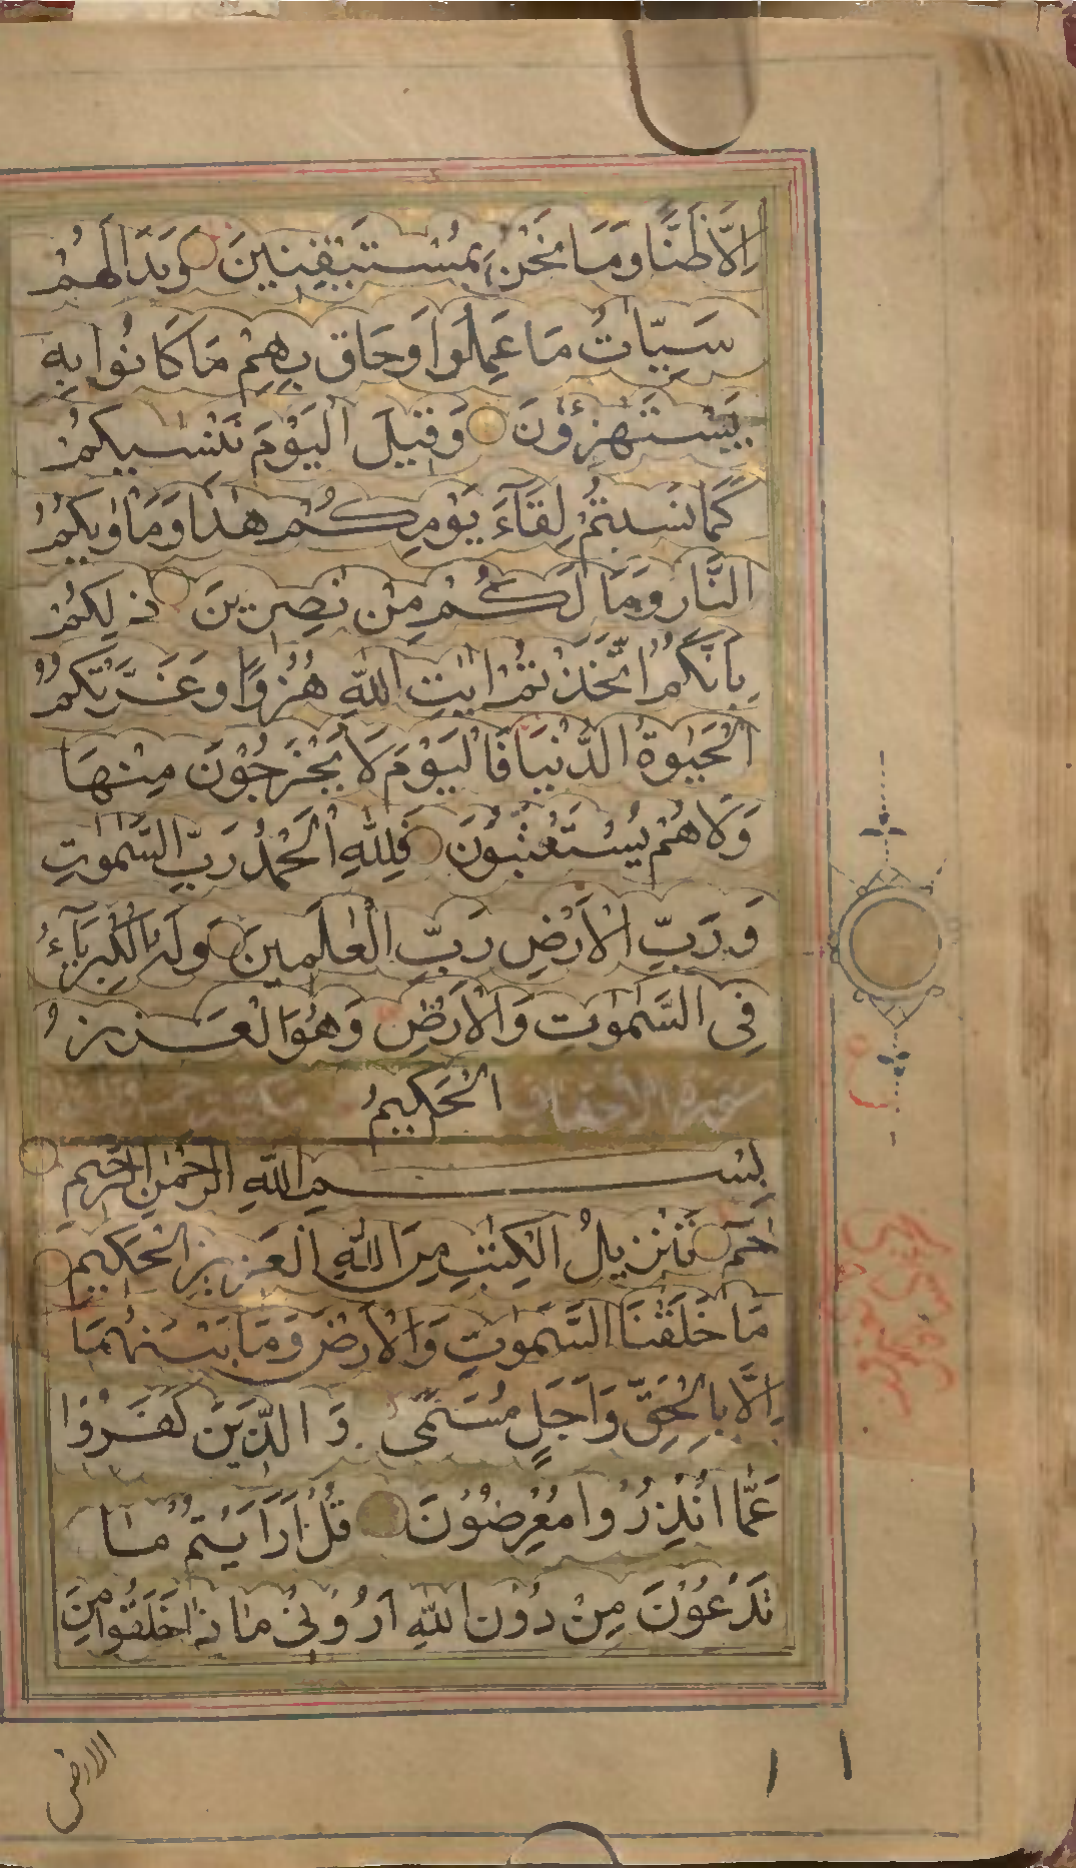 اِلَّا ظَنًّا وَمَا نَحْنُ بِمُسْتَيْقِنِينَ وَبَدَا لَهُمْ
سَيِّاٰتُ مَا عَمِلُوا وَحَاقَ بِهِمْ مَا كَانُوا بِهِ
يَسْتَهْزِؤُنَ وَقِيلَ الْيَوْمَ نَنْسٰيكُمْ
كَمَا نَسِيتُمْ لِقَآءَ يَوْمِكُمْ هٰذَا وَمَاْوٰيكُمُ
النَّارُ وَمَا لَكُمْ مِنْ نٰصِرِينَ ذٰلِكُمْ
بِاَنَّكُمُ اتَّخَذْتُمْ اٰيٰتِ اللّٰهِ هُزُوًا وَغَرَّتْكُمُ
الْحَيٰوةُ الدُّنْيَا فَالْيَوْمَ لَا يُخْرَجُونَ مِنْهَا
وَلَا هُمْ يُسْتَعْتَبُونَ فَلِلّٰهِ الْحَمْدُ رَبِّ السَّمٰوٰتِ
وَرَبِّ الْاَرْضِ رَبِّ الْعٰلَمِينَ وَلَهُ الْكِبْرِيَآءُ
فِى السَّمٰوٰتِ وَالْاَرْضِ وَهُوَ الْعَزِيزُ
الْحَكِيمُ
سورة الاحقاف
بِسْمِ اللّٰهِ الرَّحْمٰنِ الرَّحِيمِ
حٰمٓ تَنْزِيلُ الْكِتٰبِ مِنَ اللّٰهِ الْعَزِيزِ الْحَكِيمِ
مَا خَلَقْنَا السَّمٰوٰتِ وَالْاَرْضَ وَمَا بَيْنَهُمَا
اِلَّا بِالْحَقِّ وَاَجَلٍ مُسَمًّى وَالَّذِينَ كَفَرُوا
عَمَّا اُنْذِرُوا مُعْرِضُونَ قُلْ اَرَاَيْتُمْ مَا
تَدْعُونَ مِنْ دُونِ اللّٰهِ اَرُونِى مَاذَا خَلَقُوا مِنَ
الارض